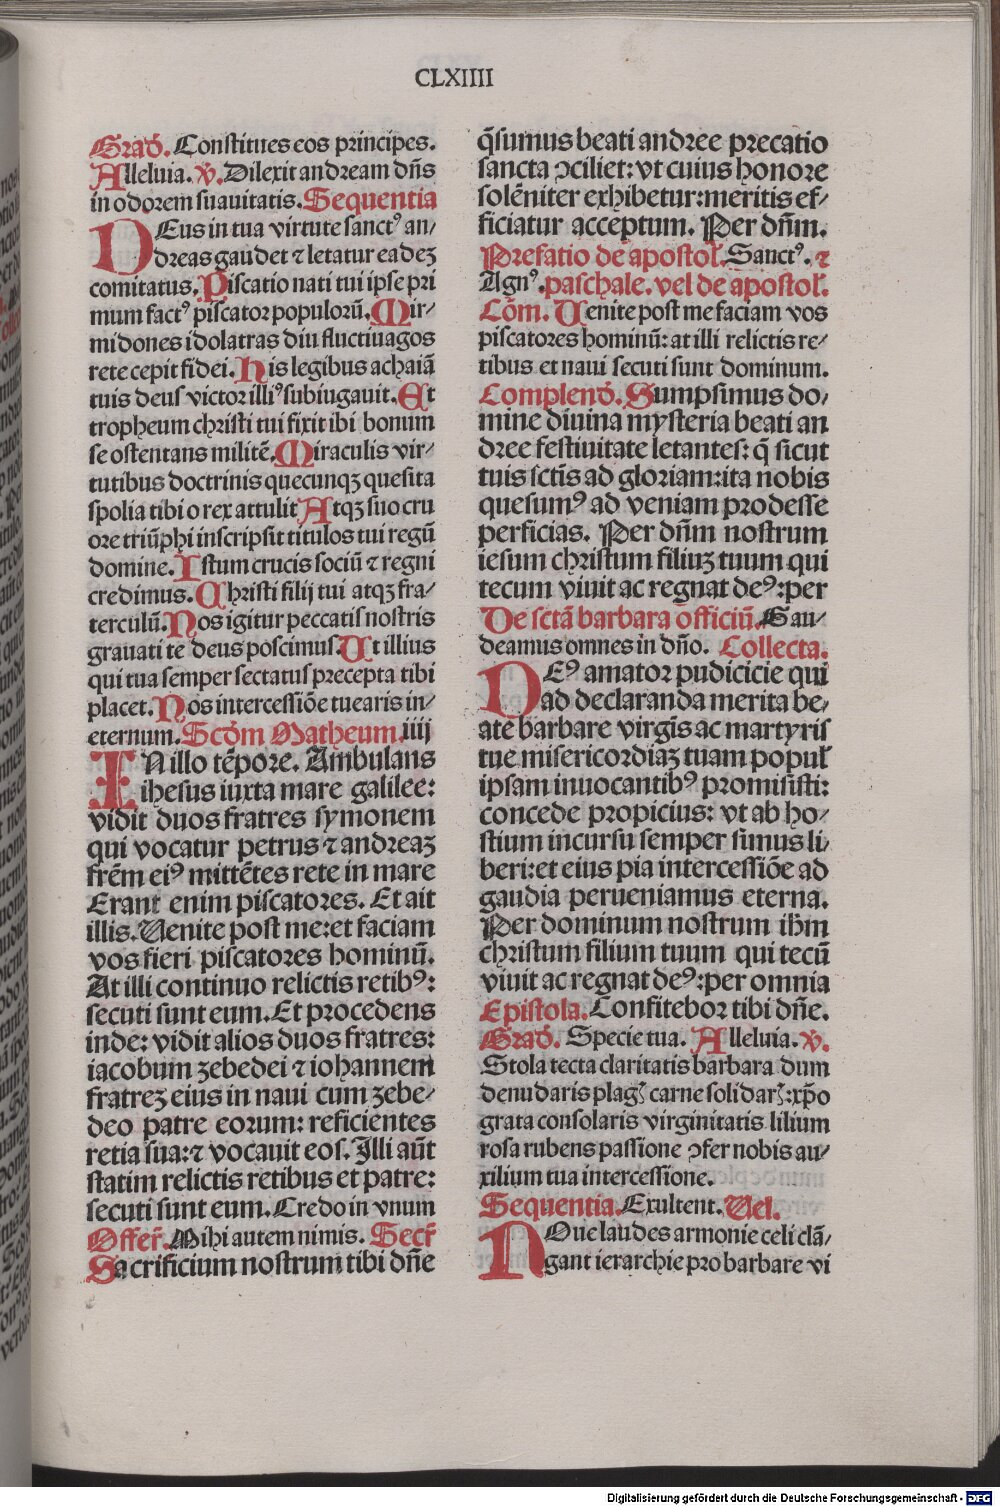 CLXIIII
Grad̄. Constitues eos principes.
Alleluia. v̄. Dilexit andream dn̄s
in odorem suauitatis. Sequentia
DEus in tua virtute sanctꝰ an/
dreas gaudet ⁊ letatur eadeȝ
comitatus. Piscatio nati tui ipse pri
mum factꝰ piscator populorū. Mir/
midones idolatras diu fluctiuagos
rete cepit fidei. His legibus achaiā
tuis deus victor illiꝰ subiugauit. Et
tropheum christi tui fixit ibi bonum
se ostentans militē. Miraculis vir/
tutibus doctrinis quecunqȝ quesita
spolia tibi o rex attulit Atqȝ suo cru
ore triūphi inscripsit titulos tui regū
domine. Istum crucis sociū ⁊ regni
credimus. Christi filij tui atqȝ fra/
terculū. Nos igitur peccatis nostris
grauati te deus poscimus. Ut illius
qui tua semper sectatus precepta tibi
placet. Nos intercessiōe tuearis in/
eternum. Scd̄m Matheum. iiij
IN illo tēpore. Ambulans
ihesus iuxta mare galilee:
vidit duos fratres symonem
qui vocatur petrus ⁊ andreaȝ
frēm eiꝰ mittētes rete in mare
Erant enim piscatores. Et ait
illis. Uenite post me: et faciam
vos fieri piscatores hominū.
At illi continuo relictis retibꝰ:
secuti sunt eum. Et procedens
inde: vidit alios duos fratres:
iacobum ȝebedei ⁊ iohannem
fratreȝ eius in naui cum ȝebe/
deo patre eorum: reficientes
retia sua: ⁊ vocauit eos. Illi aūt
statim relictis retibus et patre:
secuti sunt eum. Credo in vnum
Offer̄. Mihi autem nimis. Secr̄
Sacrificium nostrum tibi dn̄e
q̄sumus beati andree precatio
sancta ꝯciliet: vt cuius honore
solēniter exhibetur: meritis ef/
ficiatur acceptum. Per dn̄m.
Prefatio de apostol̄. Sanctꝰ. ⁊
Agnꝰ. paschale. vel de apostol̄.
Cōm. Uenite post me faciam vos
piscatores hominū: at illi relictis re/
tibus et naui secuti sunt dominum.
Complend̄. Sumpsimus do/
mine diuina mysteria beati an
dree festiuitate letantes: q̄ sicut
tuis sctīs ad gloriam: ita nobis
quesumꝰ ad veniam prodesse
perficias. Per dn̄m nostrum
iesum christum filiuȝ tuum qui
tecum viuit ac regnat deꝰ: per
De sctā barbara officiū. Gau/
deamus omnes in dn̄o. Collecta.
DEꝰ amator pudicicie qui
ad declaranda merita be/
ate barbare virgīs ac martyris
tue misericordiaȝ tuam popul̄
ipsam inuocantibꝰ promisisti:
concede propicius: vt ab ho/
stium incursu semper simus li/
beri: et eius pia intercessiōe ad
gaudia perueniamus eterna.
Per dominum nostrum ihm̄
christum filium tuum qui tecū
viuit ac regnat deꝰ: per omnia
Epistola. Confitebor tibi dn̄e.
Grad̄. Specie tua. Alleluia. v̄.
Stola tecta claritatis barbara dum
denudaris plagꝭ carne solidarꝭ: xp̄o
grata consolaris virginitatis lilium
rosa rubens passione ꝯfer nobis au/
xilium tua intercessione.
Sequentia. Exultent. Uel.
NOue laudes armonie celi clā/
gant ierarchie pro barbare vi
Digitalisierung gefördert durch die Deutsche Forschungsgemeinschaft - DFG